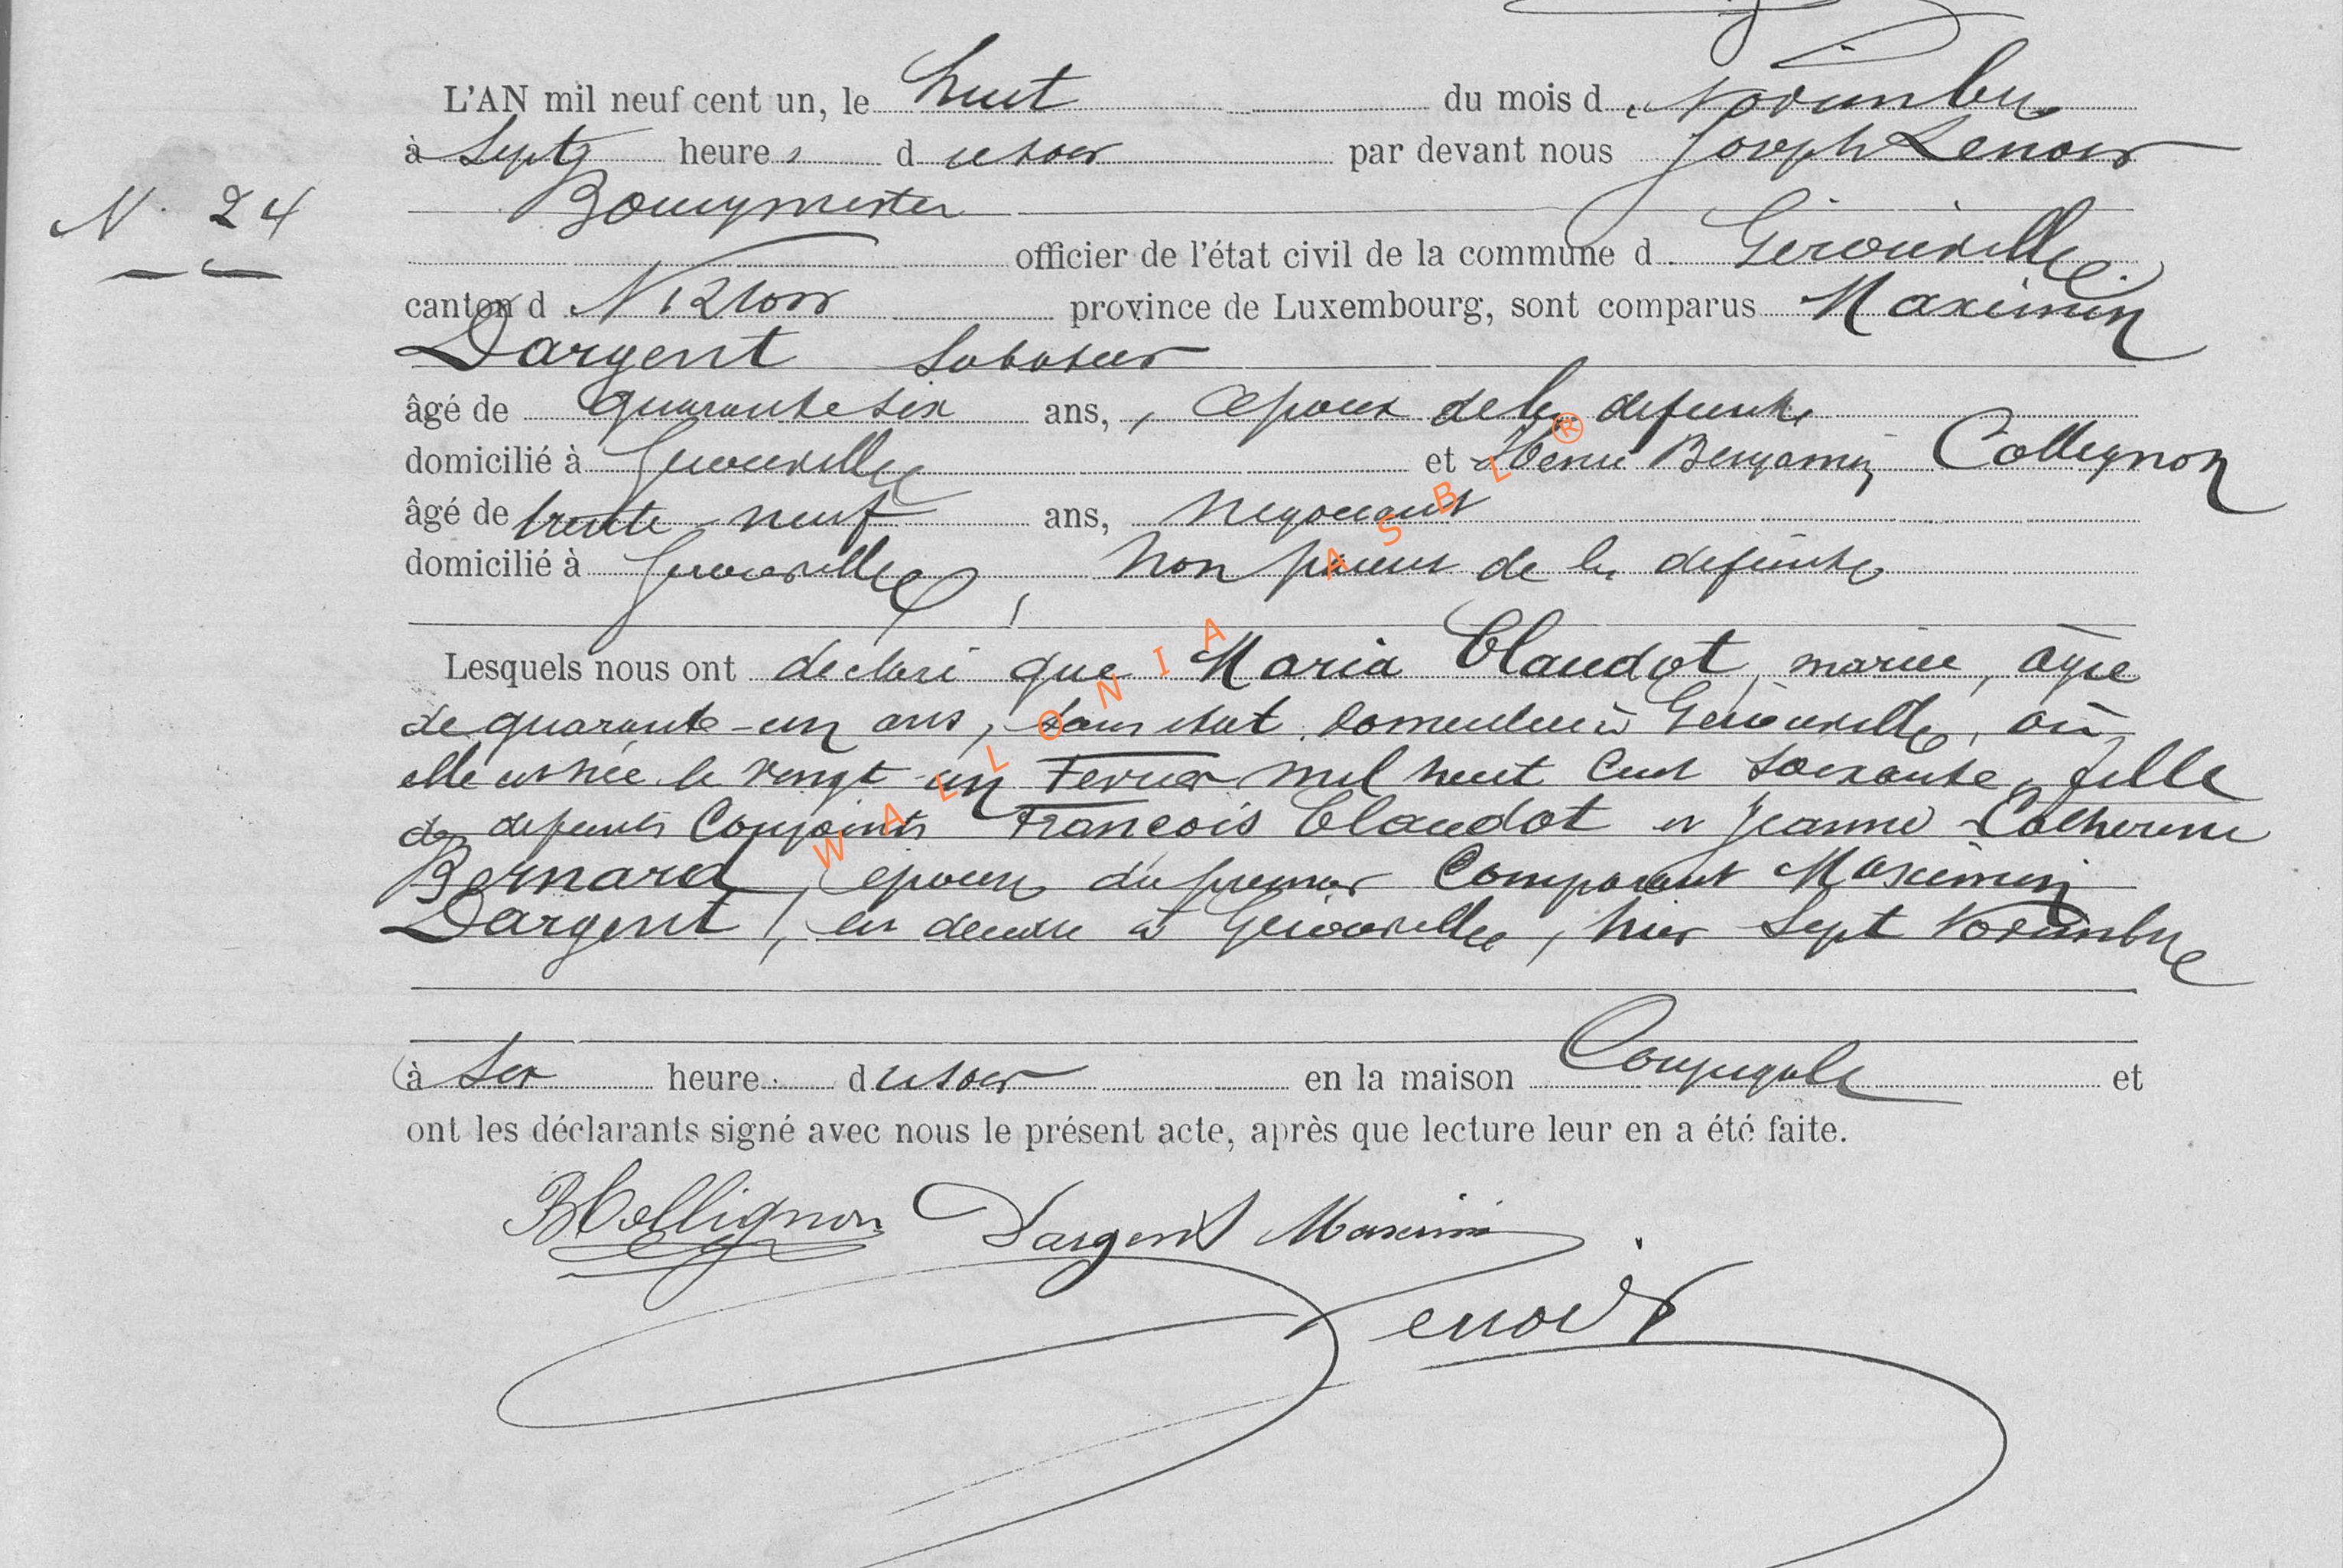 L'AN mil neuf cent un, le huit du mois de Novembre
à Sept heures du soir par devant nous Joseph Lenoir
Bourgmestre
N. 24
officier de l'état civil de la commune d Gérouville
canton d Virton province de Luxembourg, sont comparus Maximin
Dargent
âgé de quarante six ans, époux de la défunte
domicilié à Gérouville et Henri Benjamin Collignon
âgé de trente neuf ans, négociant
domicilié à Gérouville, non parent de la défunte
Lesquels nous ont déclaré que Maria Claudot, mariée, âgée
de quarante-un ans, sans état domiciliée à Gérouville, où
elle est née le vingt un Février mil huit cent soixante, fille
des défunts Conjoints François Claudot et Jeanne Catherine
Bernard, épouse du premier Comparant Maximin
Dargent, est décédée à Gérouville, hier Sept Novembre
à six heure du soir en la maison Conjugale et
ont les déclarants signé avec nous le présent acte, après que lecture leur en a été faite.
BCollignon Dargent Maximin
Lenoir
WALLONIA ASBL ®